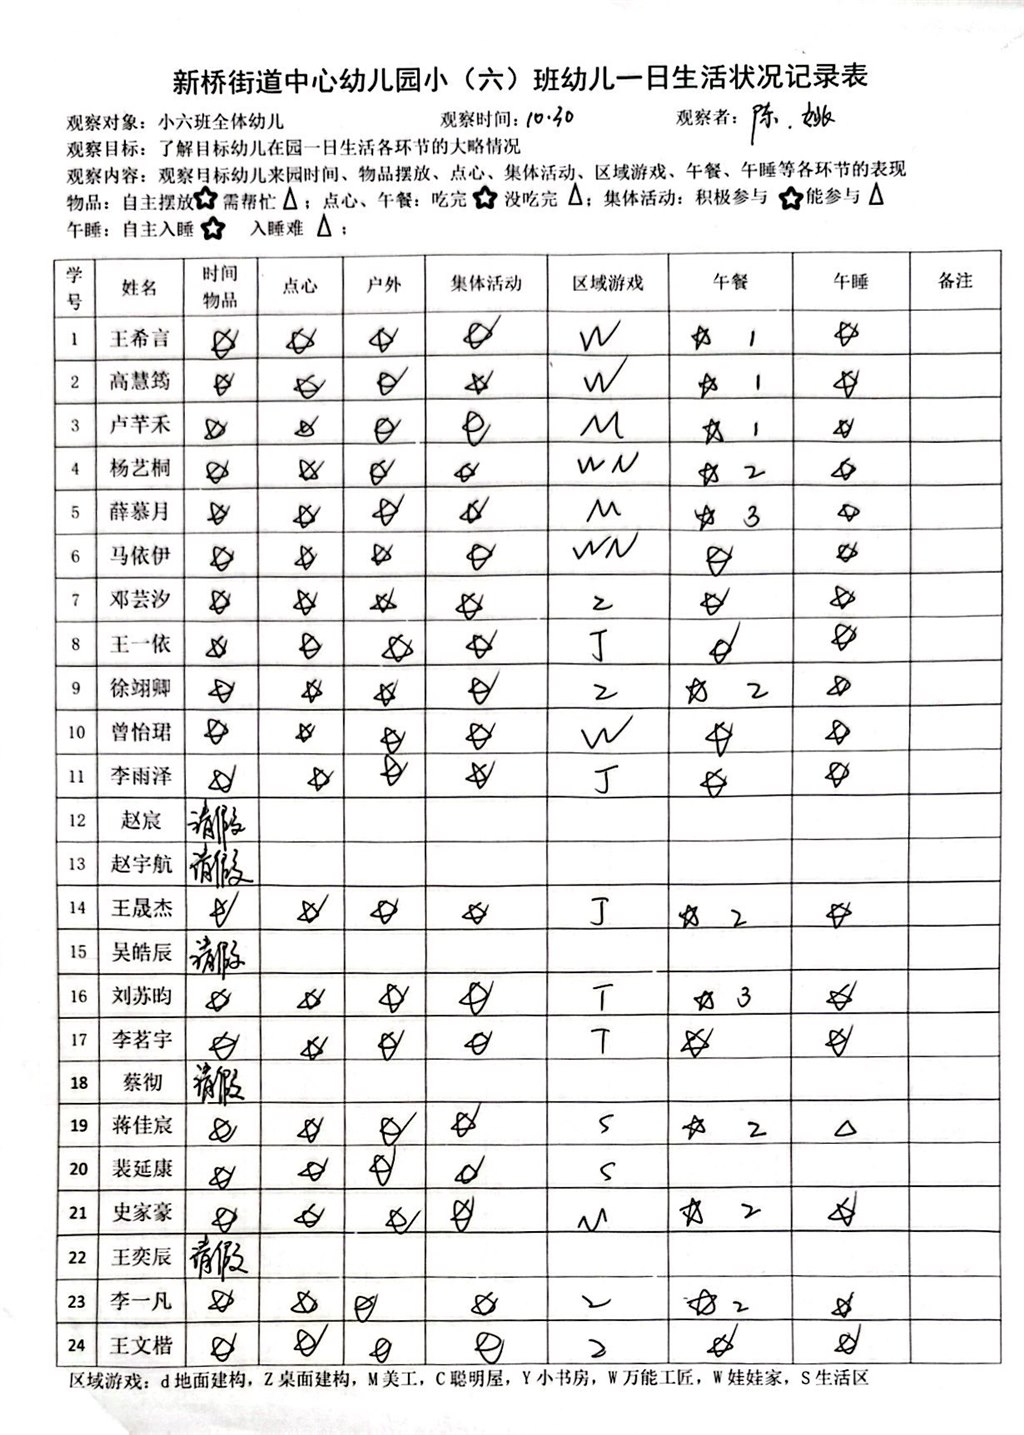 新桥街道中心幼儿园小（六）班幼儿一日生活状况记录表
观察对象：小六班全体幼儿 观察时间：10.30 观察者：陈.姚
观察目标：了解目标幼儿在园一日生活各环节的大略情况
观察内容：观察目标幼儿来园时间、物品摆放、点心、集体活动、区域游戏、午餐、午睡等各环节的表现
物品：自主摆放☆需帮忙△；点心、午餐：吃完☆没吃完△；集体活动：积极参与☆能参与△
午睡：自主入睡☆ 入睡难△；
学号 姓名 时间物品 点心 户外 集体活动 区域游戏 午餐 午睡 备注
1 王希言 ☆ ☆ ☆ ☆ W ☆ 1 ☆
2 高慧筠 ☆ ☆ ☆ ☆ W ☆ 1 ☆
3 卢芊禾 ☆ ☆ ☆ ☆ M ☆ 1 ☆
4 杨艺桐 ☆ ☆ ☆ ☆ WN ☆ 2 ☆
5 薛慕月 ☆ ☆ ☆ ☆ M ☆ 3 ☆
6 马依伊 ☆ ☆ ☆ ☆ WN ☆ ☆
7 邓芸汐 ☆ ☆ ☆ ☆ Z ☆ ☆
8 王一依 ☆ ☆ ☆ ☆ J ☆ ☆
9 徐翊卿 ☆ ☆ ☆ ☆ Z ☆ 2 ☆
10 曾怡珺 ☆ ☆ ☆ ☆ W ☆ ☆
11 李雨泽 ☆ ☆ ☆ ☆ J ☆ ☆
12 赵宸 请假
13 赵宇航 请假
14 王晟杰 ☆ ☆ ☆ ☆ J ☆ 2 ☆
15 吴皓辰 请假
16 刘苏昀 ☆ ☆ ☆ ☆ T ☆ 3 ☆
17 李茗宇 ☆ ☆ ☆ ☆ T ☆ ☆
18 蔡彻 请假
19 蒋佳宸 ☆ ☆ ☆ ☆ S ☆ 2 △
20 裴延康 ☆ ☆ ☆ ☆ S
21 史家豪 ☆ ☆ ☆ ☆ M ☆ 2 ☆
22 王奕辰 请假
23 李一凡 ☆ ☆ ☆ ☆ Z ☆ 2 ☆
24 王文楷 ☆ ☆ ☆ ☆ Z ☆ ☆
区域游戏：d地面建构，Z桌面建构，M美工，C聪明屋，Y小书房，W万能工匠，W娃娃家，S生活区